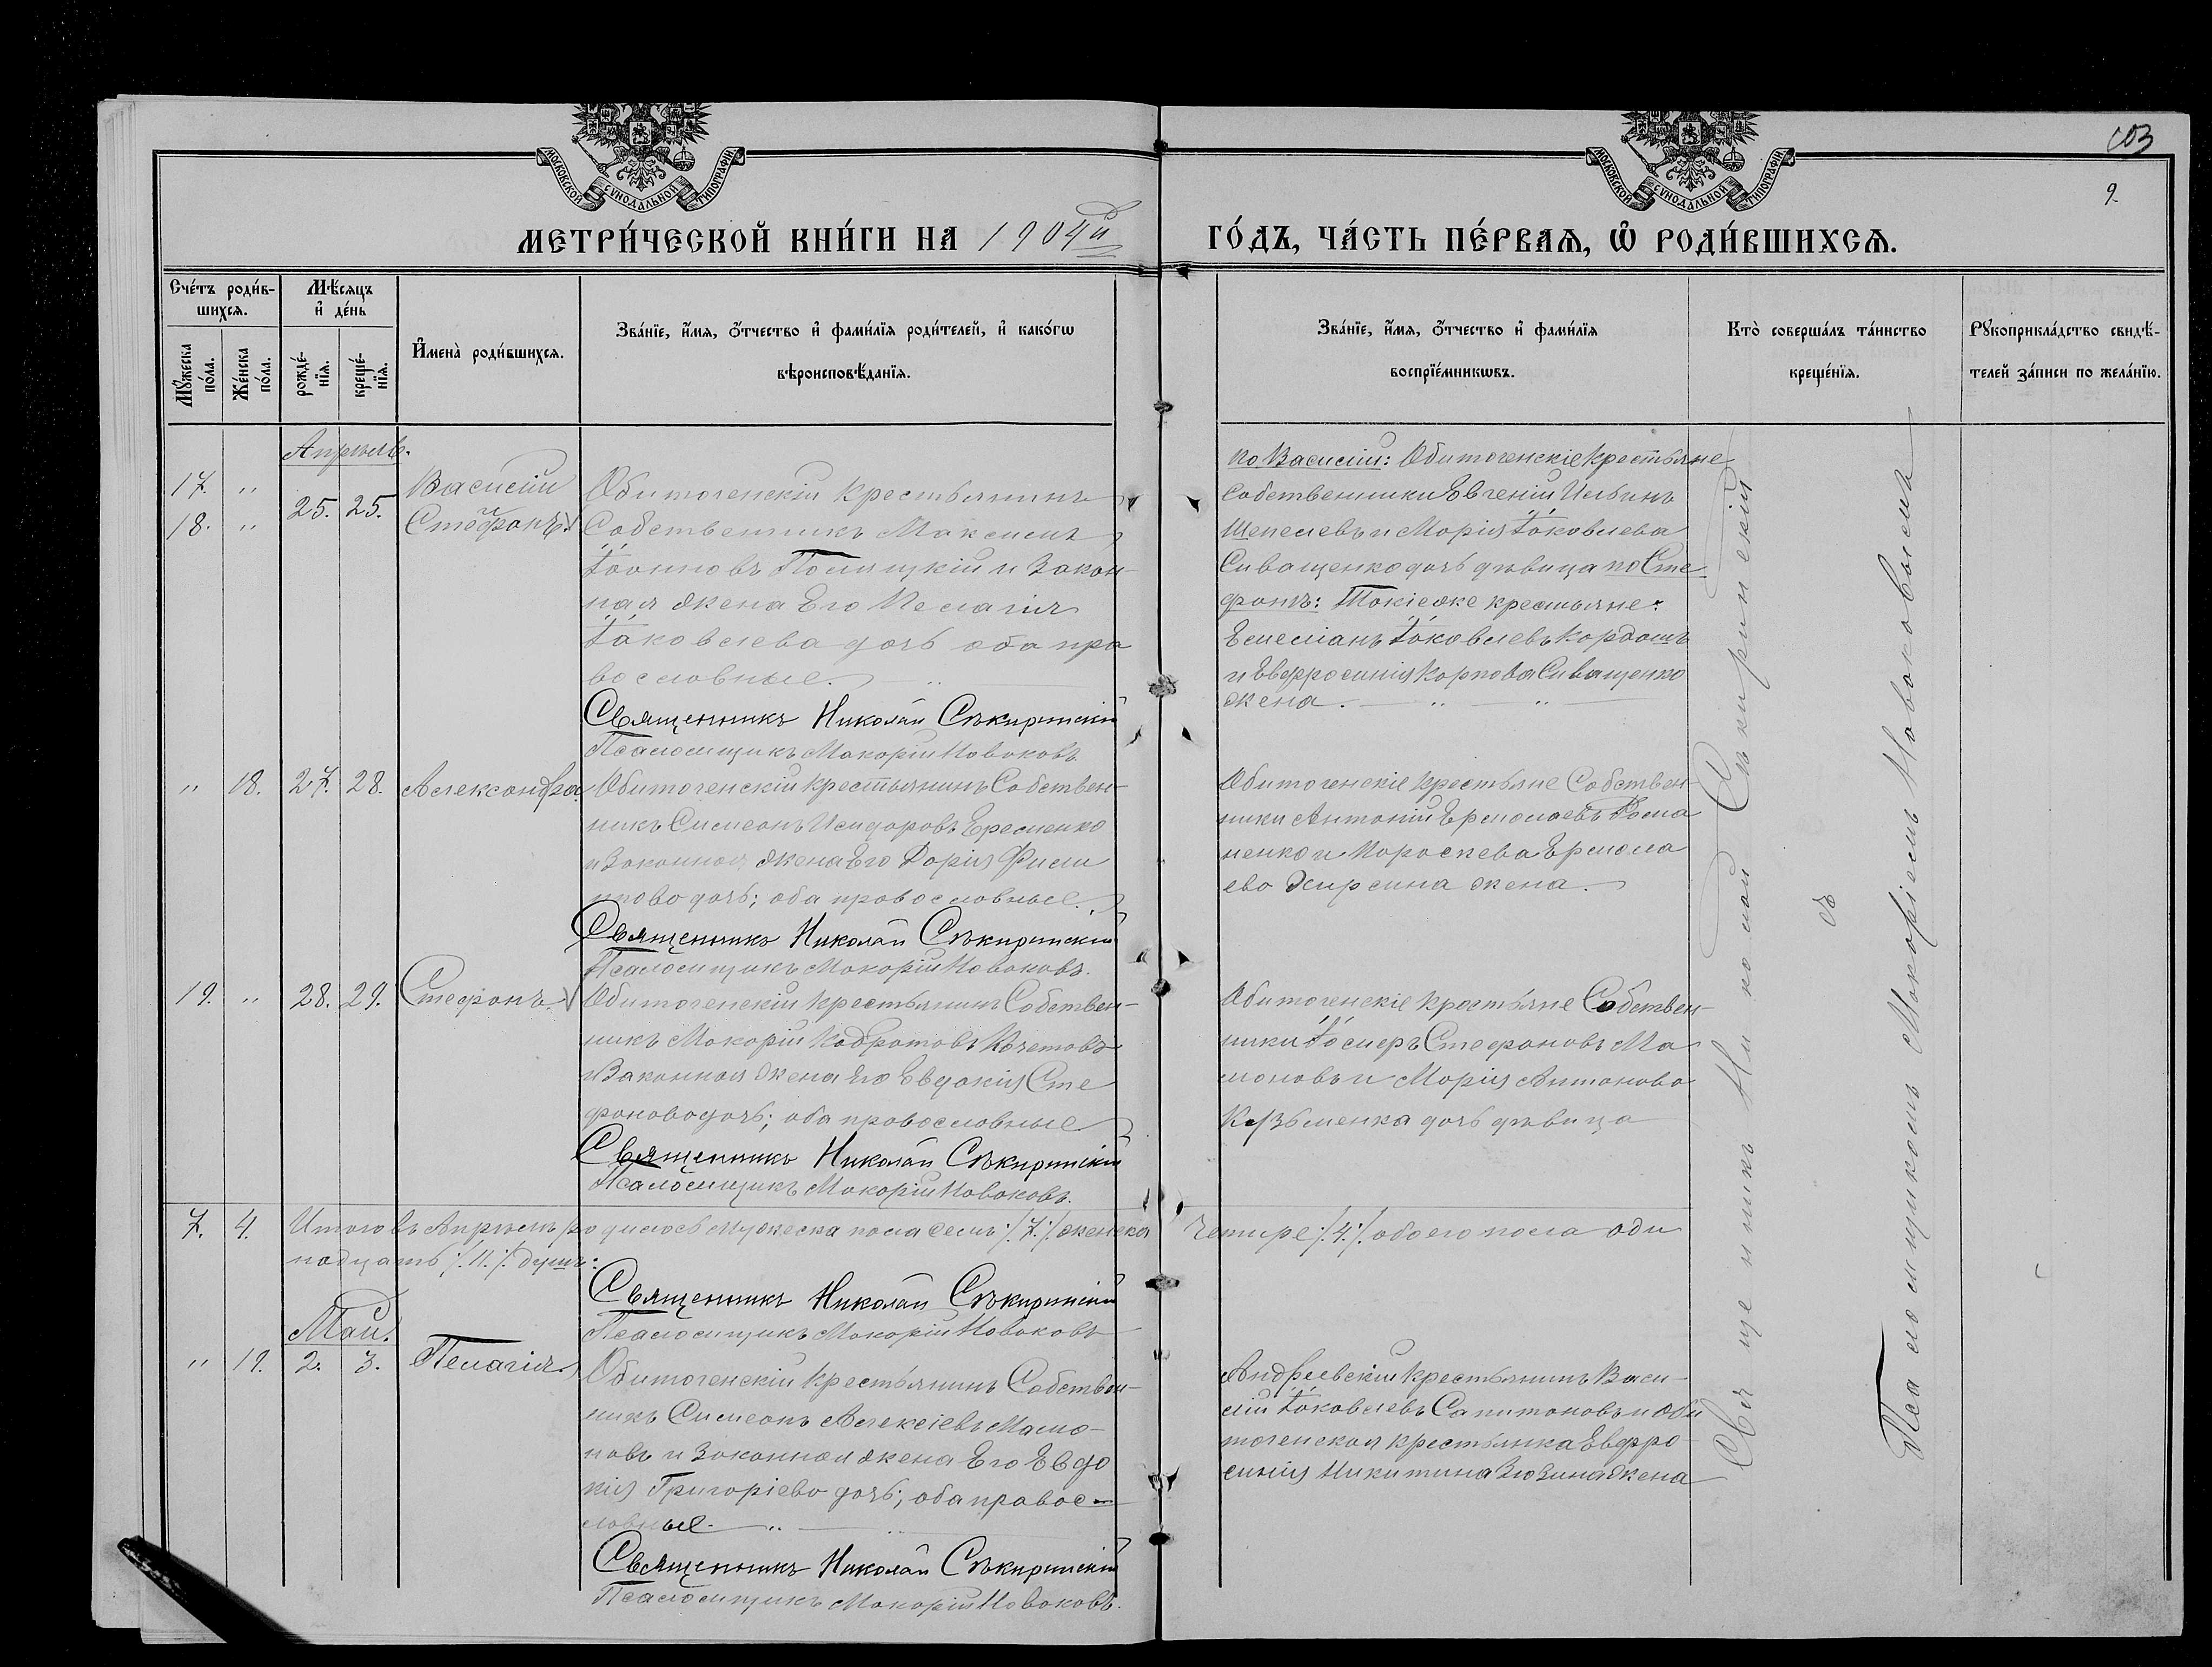 103
9.
МОСКОВСКОЙ СѴНОДАЛЬНОЙ ТИПОГРАФІИ.
МОСКОВСКОЙ СѴНОДАЛЬНОЙ ТИПОГРАФІИ.
МЕТРИ́ЧЕСКОЙ КНИ́ГИ НА 1904й ГО́ДЪ, ЧА́СТЬ ПЕ́РВАѦ, Ѽ РОДИ́ВШИХСѦ.
Сче́тъ роди́в-
шихсѧ.
Мѣ́сѧцъ
и҆ де́нь
Мꙋжеска
по́ла.
Же́нска
по́ла.
рожде́-
нїѧ.
креще́-
нїѧ.
И҆мена̀ роди́вшихсѧ.
Зва́нїе, и҆́мѧ, ѻ҆́тчество и҆ фами́лїѧ роди́телей, и҆ како́гѡ
вѣроисповѣ́данїѧ.
Зва́нїе, и҆́мѧ, ѻ҆́тчество и҆ фами́лїѧ
воспрїе́мникѡвъ.
Кто̀ соверша́лъ та́инство
креще́нїѧ.
Рꙋкоприкла́дство свидѣ́-
телей за́писи по жела́нїю.
Апрѣль.
17. " 25. 25. Василій
18. " Стефанъ.
Обиточенскій крестьянинъ
Собственникъ Максимъ
Іоанновъ Полицкій и закон-
ная жена Его Пелагія
Іаковлева дочь оба пра
вославные.
Священникъ Николай Сѣкиринскій
Псаломщикъ Макарій Новаковъ
По Василіи: Обиточенскіе крестьяне
собственники Евгеній Ильинъ
Шепелевъ и Марія Іаковлева
Сиващенко дочь дѣвица по Сте
фанѣ: Такіе же крестьяне:
Емеліанъ Іаковлевъ Кордашъ
и Евфросинія Карпова Сиващенко
жена.
" 18. 27. 28. Александра.
Обиточенскій крестьянинъ Собствен-
никъ Симеонъ Исидоровъ Еременко
и Законная жена Его Дарія Фили
пова дочь; оба православные.
Священникъ Николай Сѣкиринскій
Псаломщикъ Макарій Новаковъ.
Обиточенскіе крестьяне Собствен
ники Антоній Ермолаевъ
ненко и Параскева Ермола
ева жена.
19. " 28. 29. Стефанъ.
Обиточенскій крестьянинъ Собствен-
никъ Макарій Кодратовъ Кочетовъ
и Законная жена Его Евдокія Сте
фанова дочь; оба православные
Священникъ Николай Сѣкиринскій
Псаломщикъ Макарій Новаковъ.
Обиточенскіе крестьяне Собствен-
ники Стефановъ Ма
моновъ и Марія Антонова
Кузьменка дочь дѣвица
7. 4. Итого въ Апрѣлѣ родилось мужеска пола семь /:7:/ женска четыре /:4:/ обоего пола оди
надцать /:11:/ душъ:
Священникъ Николай Сѣкиринскій
Псаломщикъ Макарій Новаковъ
Май.
" 19. 2. 3. Пелагія.
Обиточенскій крестьянинъ Собствен-
никъ Симеонъ Алексіевъ Мамо-
новъ и Законная жена Его Евдо
кія Григоріева дочь; оба правос-
лавные.
Священникъ Николай Сѣкиринскій
Псаломщикъ Макарій Новаковъ.
Андреевскій крестьянинъ Васи-
лій Іаковлевъ Сапитоновъ и Оби
точенская крестьянка Евфро
синія Никитина Зюзина жена
Священникъ Николай Сѣкиринскій
съ
Псаломщикомъ Макаріемъ Новаковымъ